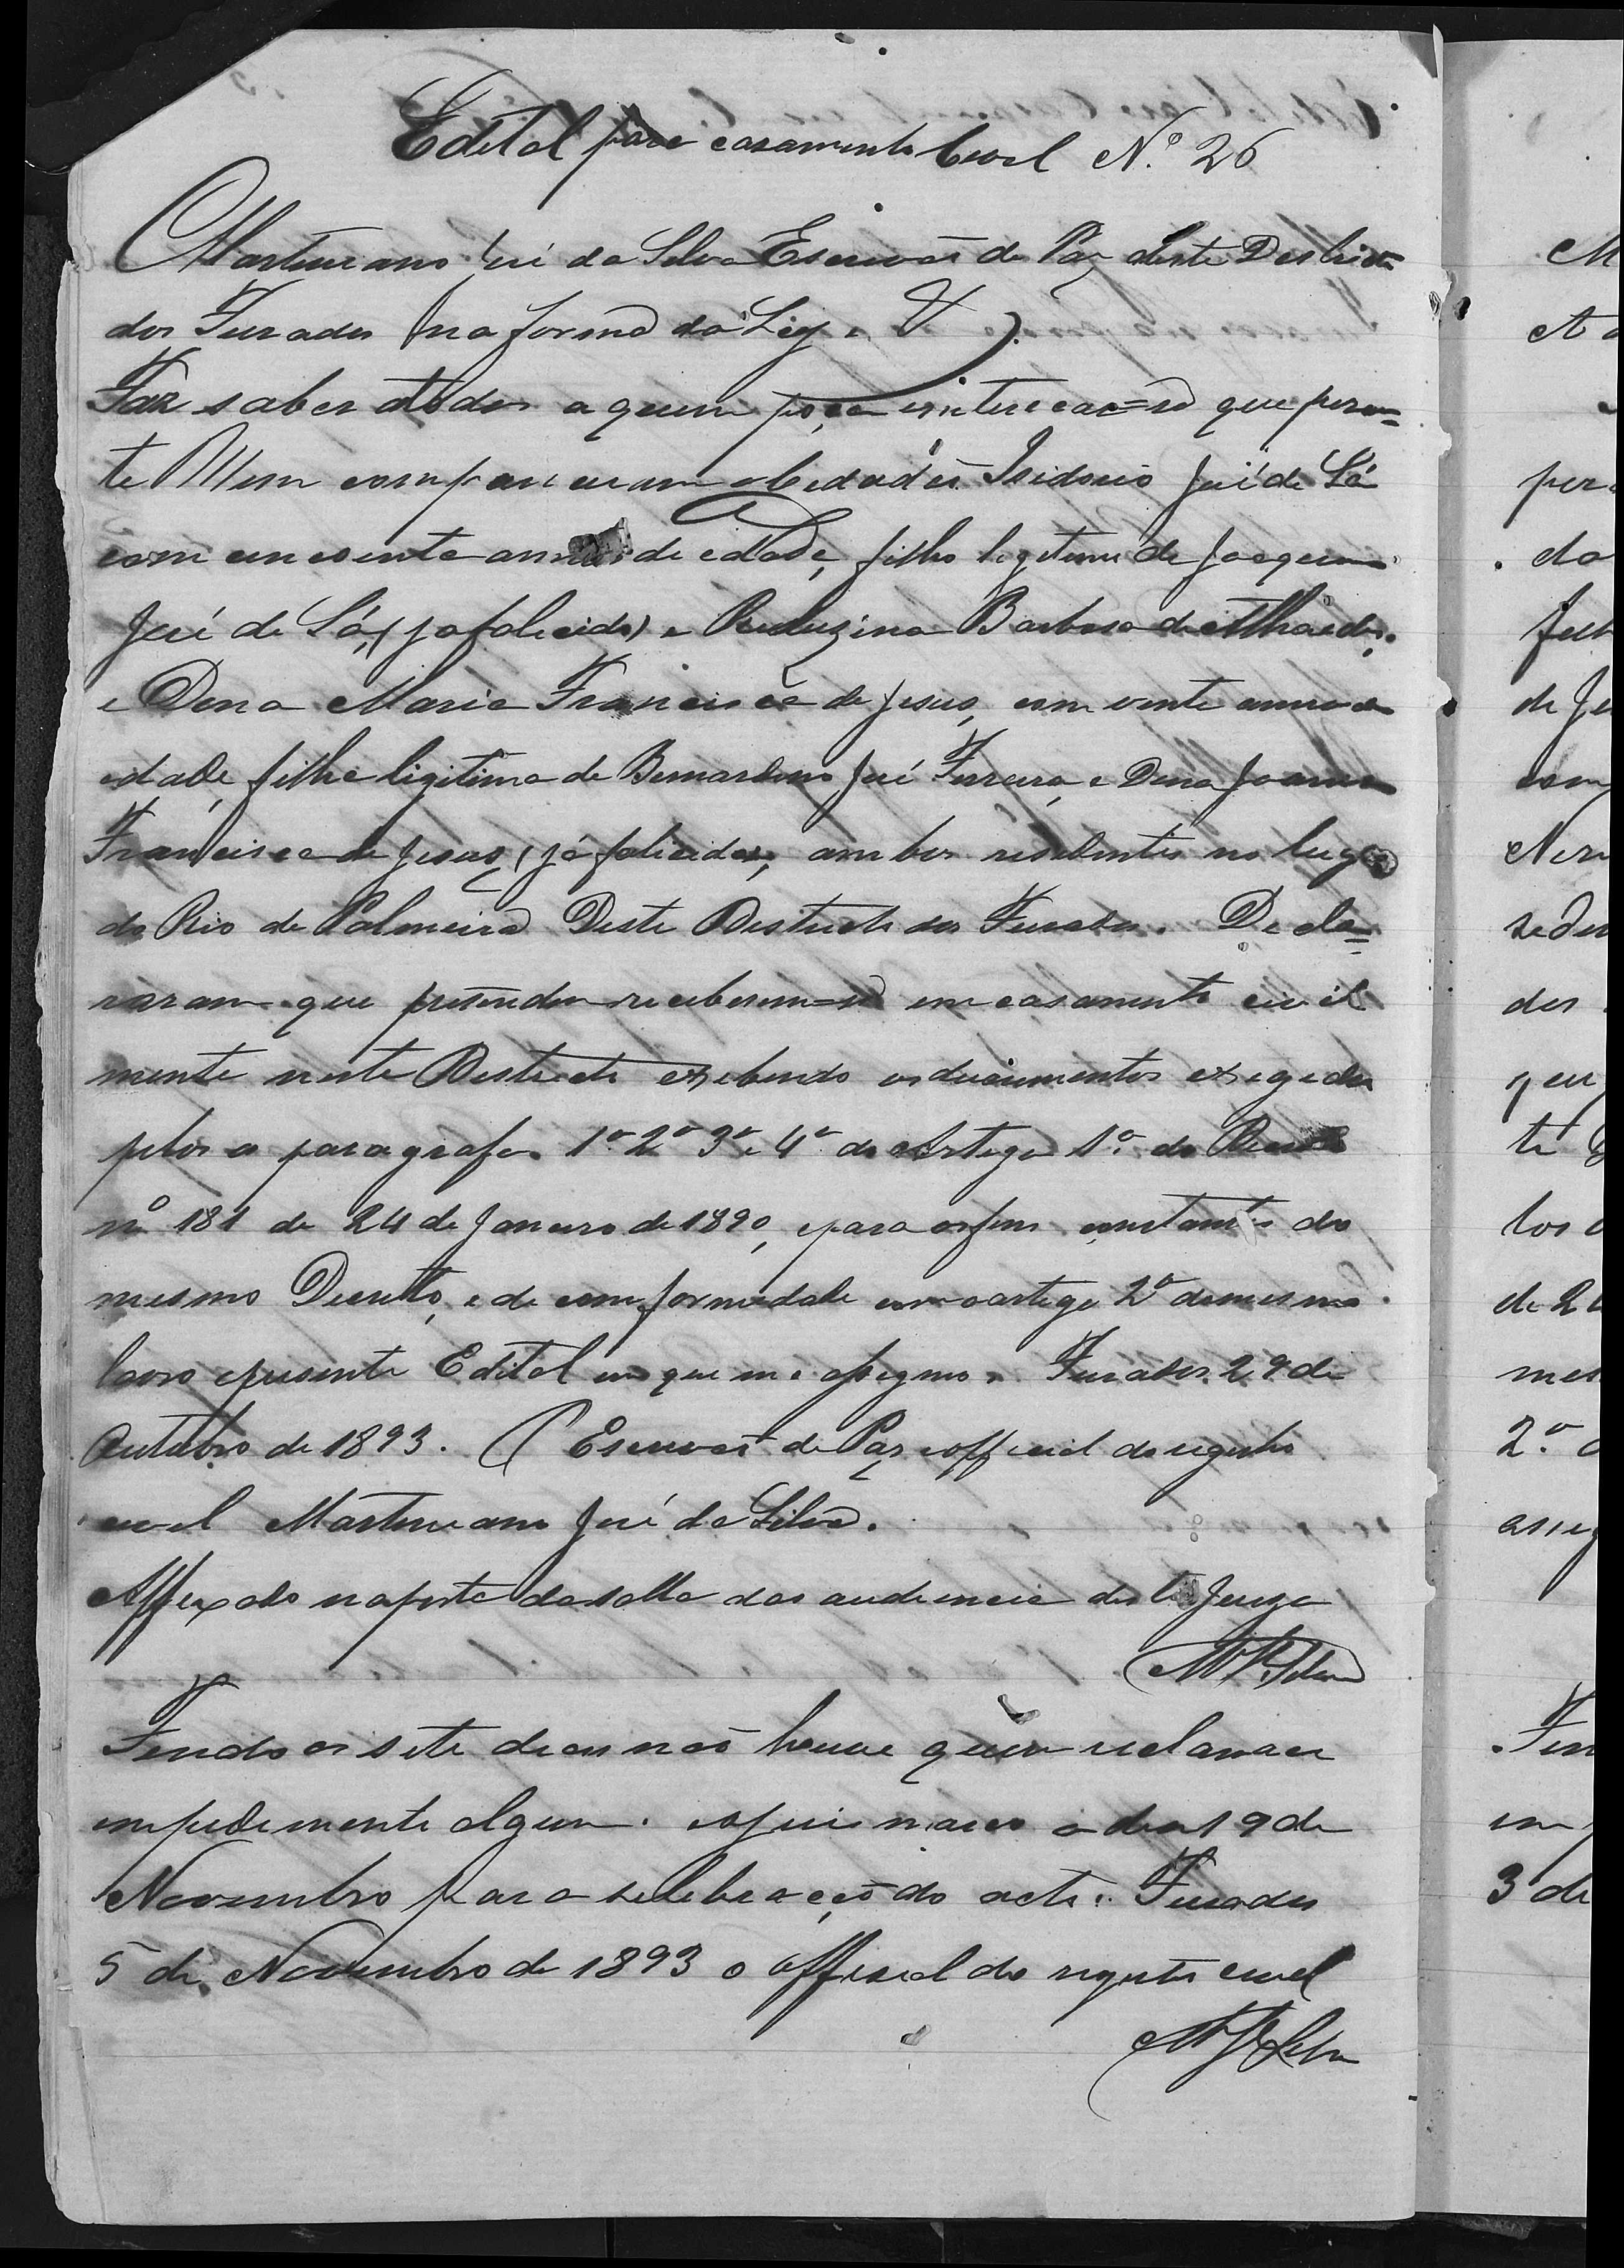 Edital para casamento Civel N.º 26
Martiniano José da Silva Escrivaõ de Paz deste Destricto
dos Furados (na forma da Ley. V)
Faz saber atodos a quem poça enterecar=se que peran=
te Mim comparceram os Cedadões Isidorio José de Sá
com vinte annos de edade, filho legitimo de Joaquim
José de Sá, (ja falecido) e Barbosa de
e Dona Maria Francisca de Jesus, com vinte annos de
edade, filha ligitima de Bernardino José Ferreira, e Dona Joanna
Francisca de Jesus, (já falicida), ambos residentes no lugar
do Rio de Palmeira Deste Destricto dos Furados. Decla=
raram que pretendem receberem=se em casamento civil
mente neste Destricto exebendo os ducumentos exegedos
pelos os paragrafos 1º 2º 3º e 4º do Artego 1º do Decreto
nº 181 de 24 de Janeiro de 1890, epara os fins constantes do
mesmo Decreto, e de comformedade com oartego 2º domesmo
lavro epresente Edital em que me assegno. Furados 29 de
Outubro de 1893. O Escrivaõ de Paz eofficial do registro
civel Martiniano José da Silva.
Affexado naporta dasalla das audiencia deste Juizo
M J Silva
Findo os sete dias naõ houve quem reclamace
empedimento algum. e pois marco o dia 19 de
Novembro para selebracçaõ do acto. Furados
5 de Novembro de 1893 o official do registro civel
M J Silva